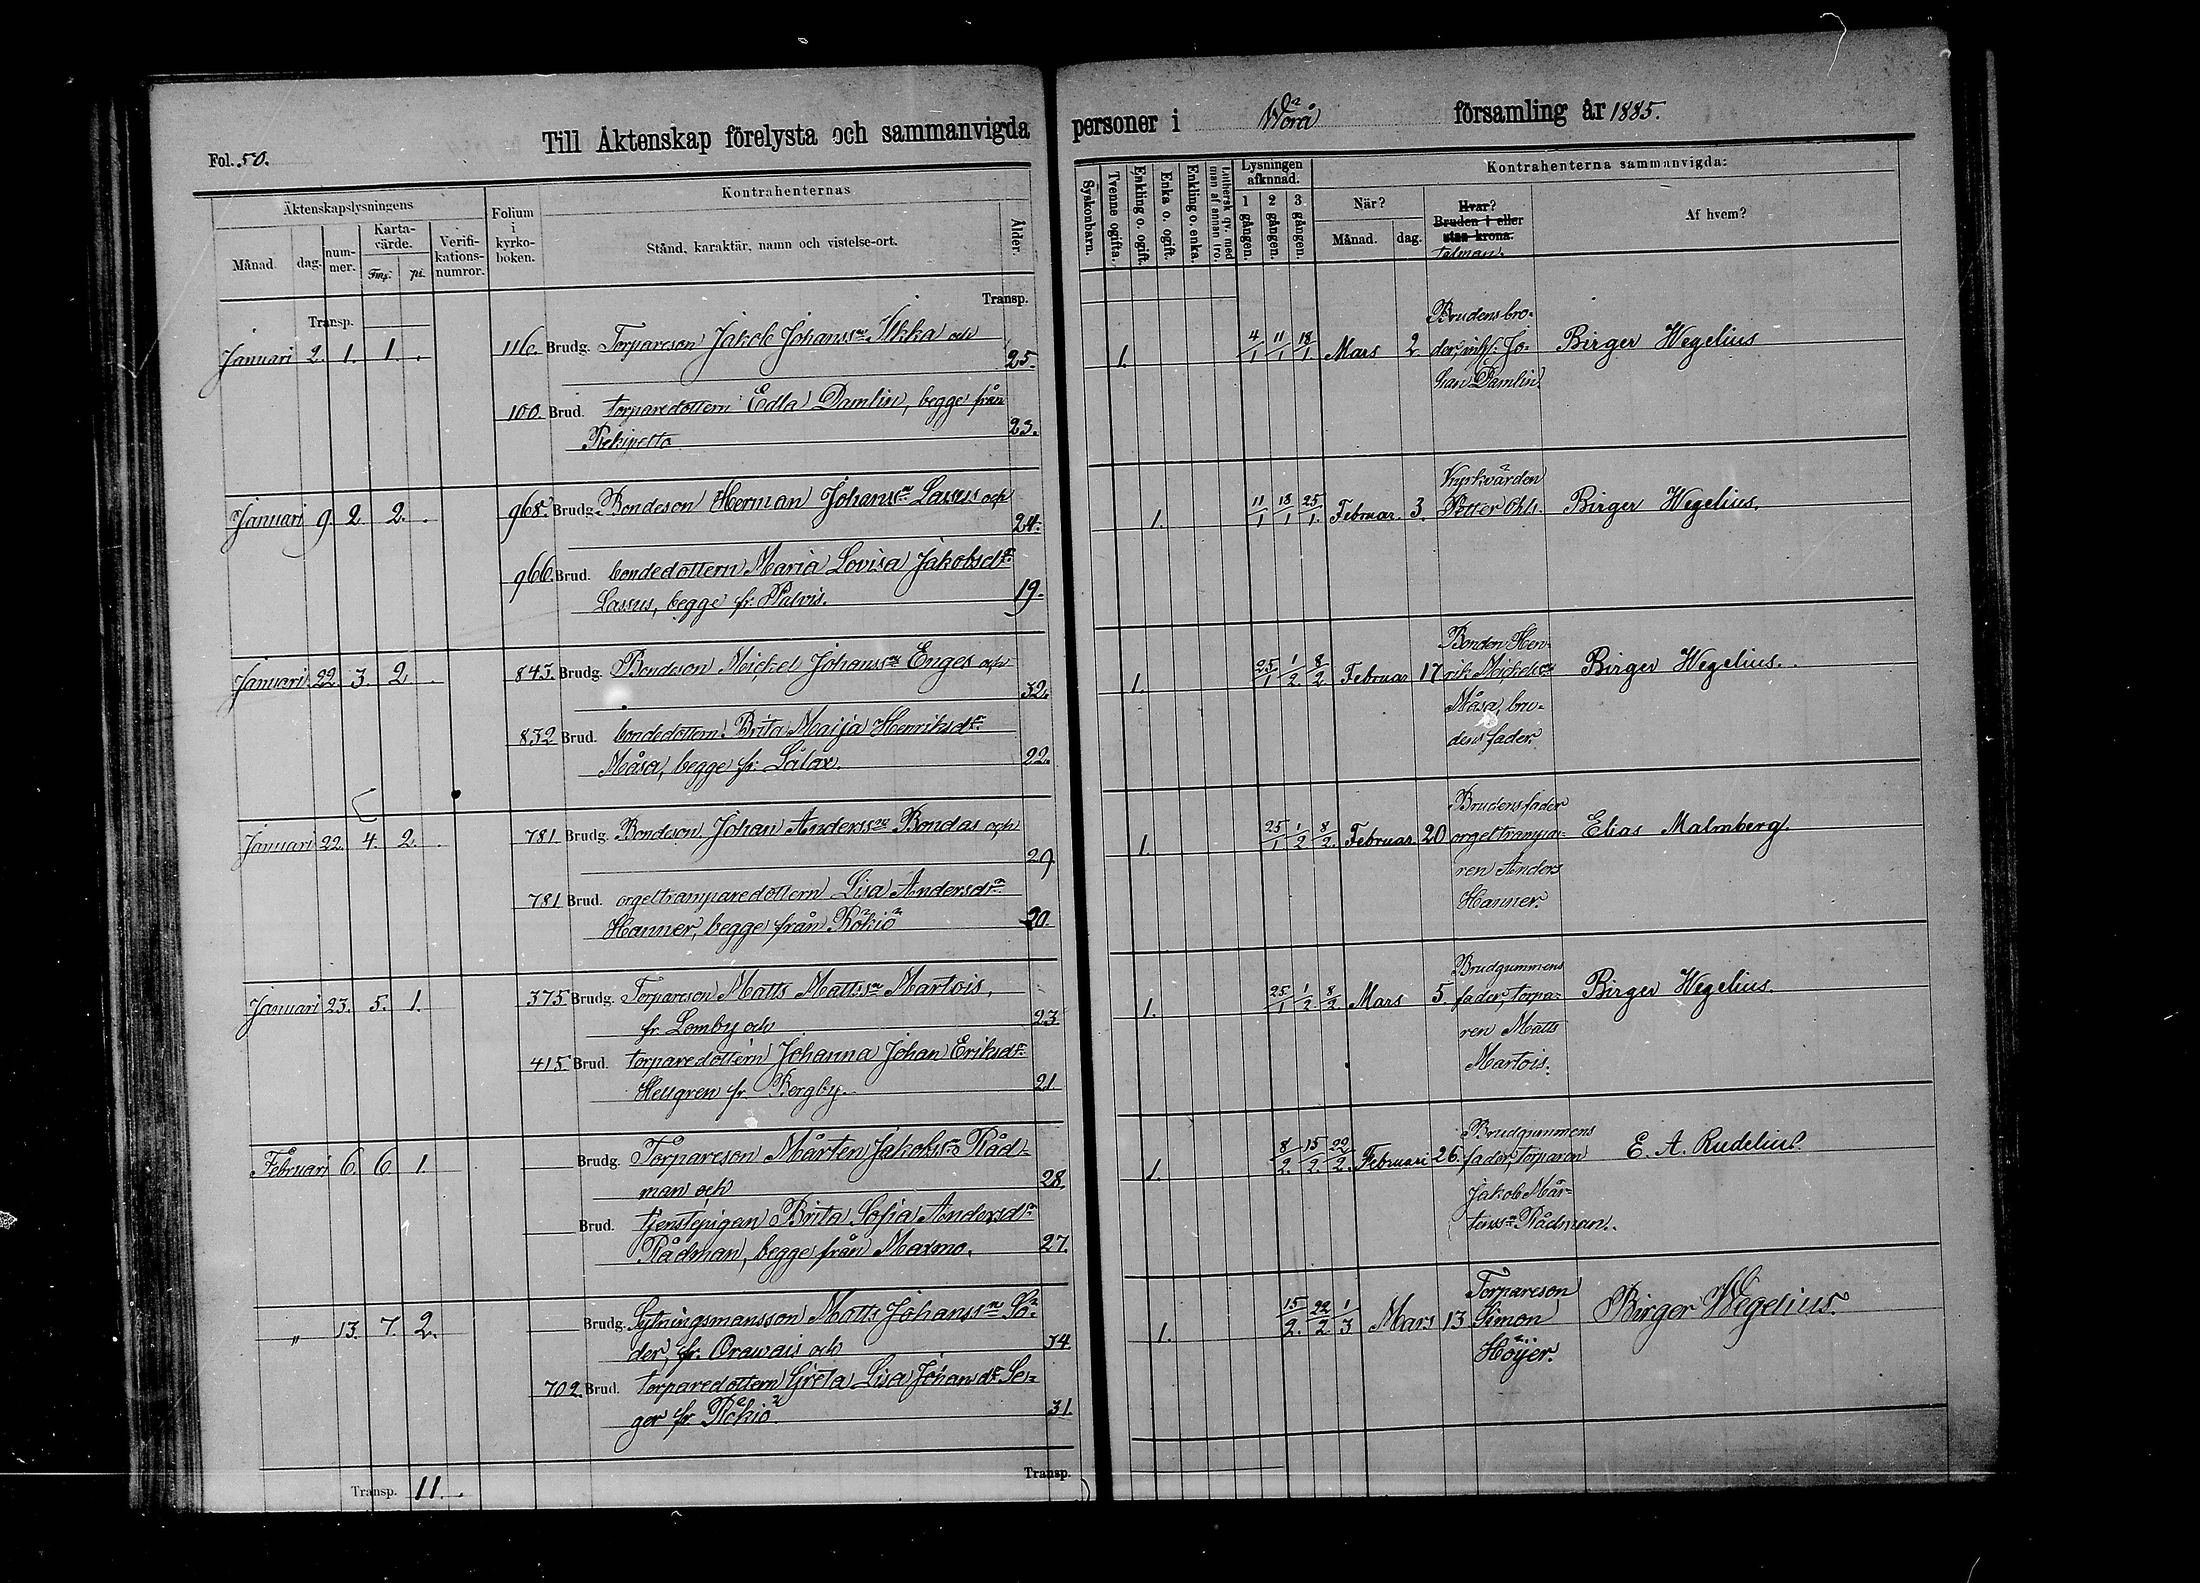 Fol. 50.
Till Äktenskap förelysta och sammanvigda
Äktenskapslysningens
Månad
dag.
num-
mer.
Karta-
värde.
Fmg. pi.
Verifi-
kations-
numror.
Folium
i
kyrko-
boken.
Kontrahenternas
Stånd, karaktär, namn och vistelse-ort.
Ålder.
Transp.
Transp.
Januari 2. 1. 1. . 116. Brudg. Torpareson Jakob Johansson Ukka och 25.
100. Brud. torparedottern Edla Damlin, begge från
Rekipelto 23.
Januari 9. 2. 2. . 968. Brudg. Bondeson Herman Johanss:n Lassus och 24.
966. Brud. bondedottern Maria Lovisa Jakobsd:r
Lassus, begge fr. Palvis. 19.
Januari 22. 3. 2. . 843. Brudg. Bondeson Mickel Johansson Enges och 32.
832 Brud. bondedottern Brita Maija Henriksd:r
Måsa, begge fr. Lålax. 22.
Januari 22. 4. 2. . 781. Brudg. Bondeson Johan Andersson Bondas och 29.
781 Brud. orgeltramparedottern Lisa Andersd:r
Hanner, begge från Rökiö 20.
Januari 23. 5. 1. 375. Brudg. Torpareson Matts Mattss:n Martois,
fr Lomby och 23.
415. Brud. torparedottern Johanna Johan Eriksd:r
Hellgren fr. Bergby. 21
Februari 6. 6. 1. Brudg. Torpareson Mårten Jakobss:n Råd-
man och 28.
Brud. tjenstepigan Brita Sofia Andersd:r
Rådman, begge från Maxmo. 27.
" 13. 7. 2. Brudg. Sytningsmansson Matts Johanss:n Sö-
der, fr. Orawais och 34
702. Brud. torparedottern Greta Lisa Johansd:r Se-
ger fr. Rökiö 31.
Transp. 11. .
Transp.
personer i Wörå församling år 1885.
Syskonbarn.
Tvenne ogifta.
Enkling o. ogift.
Enka o. ogift.
Enkling o. enka.
Luthersk qv. med
man af annan tro.
Lysningen
afkunnad.
1 gången.
2 gången.
3 gången.
Kontrahenterna sammanvigda:
När?
Månad. dag.
Hvar?
Bruden i eller
utan krona.
talman.
Af hvem?
1. 4/1 11/1 18/1 Mars 2. Brudens bro-
der, Jo-
han Damlin
Birger Wegelius
1. 11/1 18/1 25/1. Februar. 3. Kyrkvärden
Petter Ohls.
Birger Wegelius.
1. 25/1 1/2. 8/2 Februar 17 Bonden Hen-
rik Mickelss:n
Måsa, bru-
dens fader.
Birger Wegelius.
1. 25/1 1/2 8/2. Februar. 20 Brudens fader
orgeltrampa-
ren Anders
Hanner.
Elias Malmberg.
1. 25/1 1/2 8/2. Mars 5. Brudgummens
fader, torpa-
ren Matts
Martois.
Birger Wegelius.
1. 8/2. 15/2. 22/2. Februari 26. Brudgummens
fader, torparen
Jakob Mår-
tenss:n Rådman.
E. A. Rudelius.
1. 15/2. 22/2. 1/3 Mars 13 Torpareson
Simon
Höijer.
Birger Wegelius.